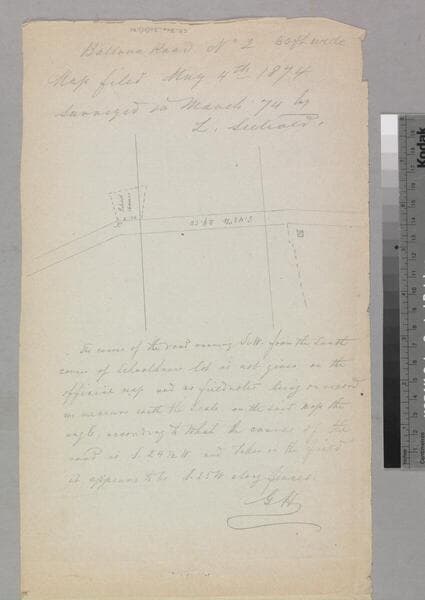 Ballona Road No 2 60 ft wide
Map filed May 4th 1874
surveyed in March 74 by
L. Seebold.
School
house
The course of the road running S.W. from the South
corner of Schoolhouse lot is not given on the
official map and no fieldnotes being on record
we measure with the Scale on the said map the
angle, according to what the course of the
road is S. 24 ½ W and taken in the field
it appears to be S. 25 W along fences.
G H
Kodak